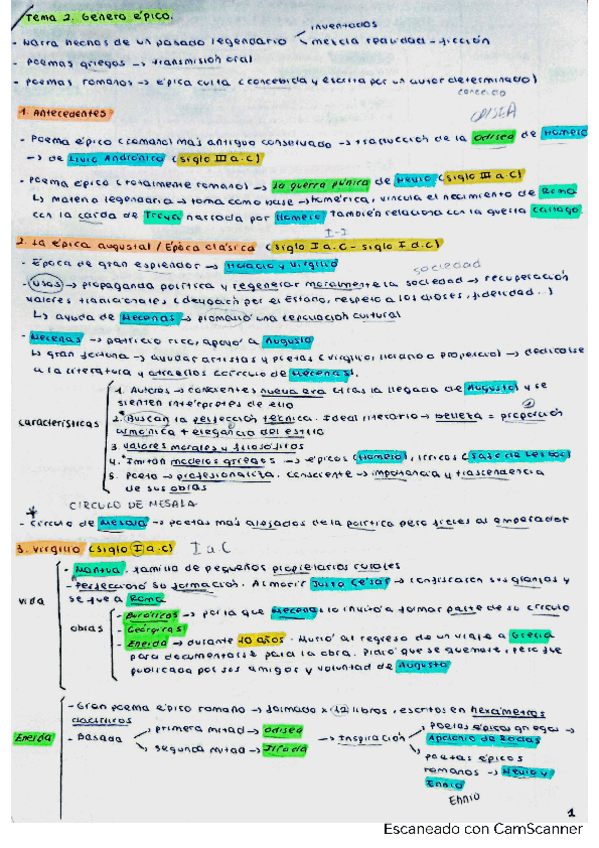 Tema 2. Genero épico.
inventados
- Narra hechos de un pasado legendario mezcla realidad - ficción
- Poemas griegos → transmisión oral
- Poemas romanos → épica culta (concebida y escrita por un autor determinado)
conocido
ODISEA
1. Antecedentes
- Poema épico (romano) más antiguo conservado → traducción de la Odisea de Homero
→ de Livio Andrónico (siglo III a.C)
- Poema épico (totalmente romano) → La guerra púnica de Nevio (siglo III a.C)
↳ materia legendaria → toma como base → homérica, vincula el nacimiento de Roma
con la caída de Troya narrada por Homero también relaciona con la guerra Cartago.
I-I
2. La épica augustal / Época clásica (siglo I a.C - siglo I d.C)
- Época de gran esplendor → Horacio y Virgilio
sociedad
- Usas → propaganda política y regenerar moralmente la sociedad → recuperación
valores tradicionales (devoción por el Estado, respeto a los dioses, fidelidad...)
↳ ayuda de Mecenas → promovió una revolución cultural
- Mecenas → patricio rico, apoyó a Augusto
↳ gran fortuna → ayudar artistas y poetas (Virgilio, Horacio o Propercio) → dedicarse
a la literatura y atraerlos (círculo de Mecenas).
1. Autores → conscientes nueva era (tras la llegada de Augusto) y se
sienten intérpretes de ello
2. Buscan la perfección técnica. Ideal literario → belleza = proporción
armónica + elegancia del estilo
características
3. Valores morales y filosóficos
4. Imitan modelos griegos → épicos (Homero), líricos (Safo de Lesbos)
5. Poeta → profesionaliza. Consciente → importancia y trascendencia
de sus obras
* CIRCULO DE MESALA
- Círculo de Mesala → poetas más alejados de la política pero fieles al emperador
3. Virgilio (siglo I a.C) I a.C
- Mantua. familia de pequeños propietarios rurales
- Perfeccionó su formación. Al morir Julio César → confiscaron sus granjas y
vida se fue a Roma
- Bucólicas → por la que Mecenas lo invitó a formar parte de su círculo
obras - Geórgicas
- Eneida → durante 10 años. Murió al regreso de un viaje a Grecia
para documentarse para la obra. Pidió que se quemase, pero fue
publicada por sus amigos y voluntad de Augusto
- Gran poema épico romano → formado x 12 libros, escritos en hexámetros
dactílicos
Eneida - Basada primera mitad → Odisea
segunda mitad → Ilíada
→ Inspiración
poetas épicos griegos →
Apolonio de Rodas
poetas épicos
romanos → Nevio y
Ennio
Ennio
1
Escaneado con CamScanner